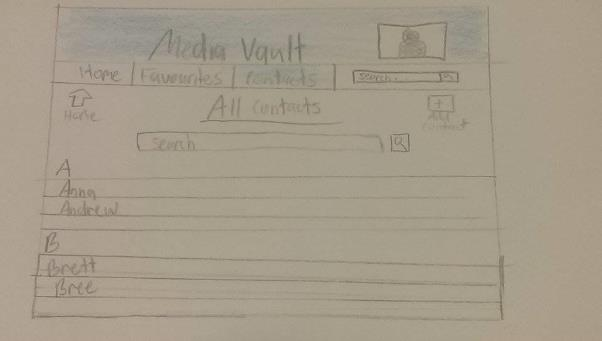 Media Vault
Home Favourites Contacts search..
Home All contacts Add contact
search
A
Anna
Andrew
B
Brett
Bree